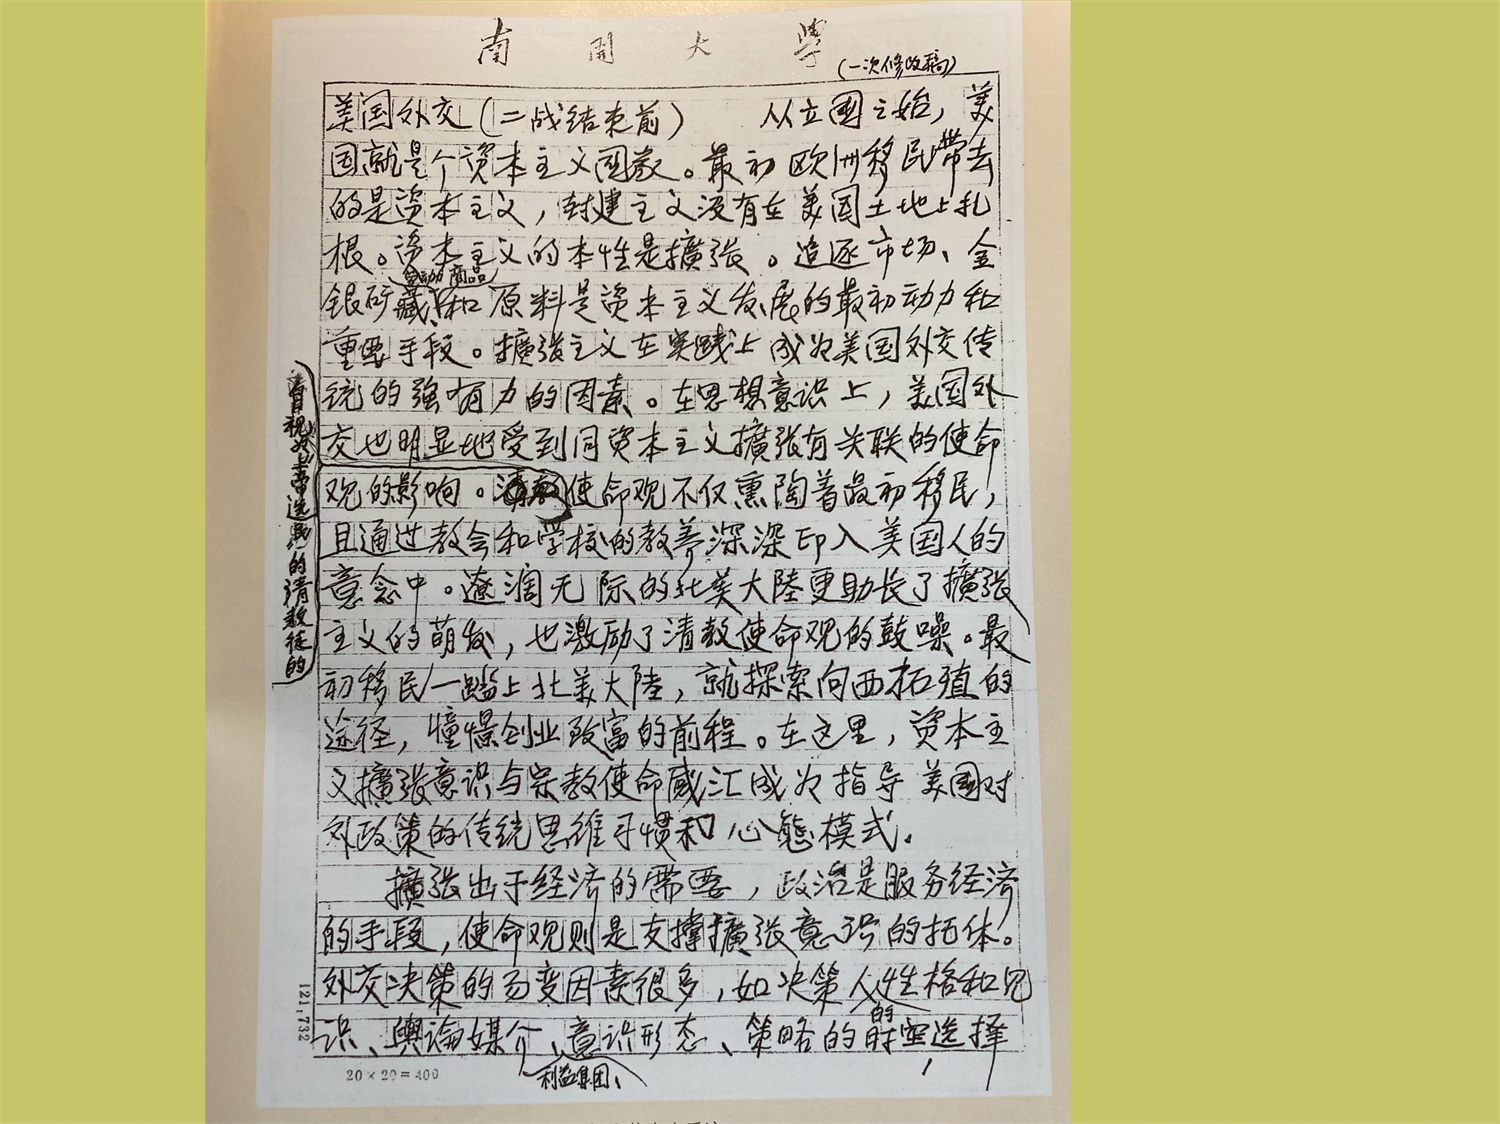 南开大学
(一次修改稿)
美国外交(二战结束前) 从立国之始,美
国就是个资本主义国家。最初欧洲移民带去
的是资本主义,封建主义没有在美国土地上扎
根。资本主义的本性是擴张。追逐市场、金
商品
银矿藏和原料是资本主义发展的最初动力和
重要手段。擴张主义在实践上成为美国外交传
统的强有力的因素。在思想意识上,美国外
交也明显地受到同资本主义擴张有关联的使命
观的影响。使命观不仅熏陶着最初移民,
自视为上帝选民的清教徒的
且通过教会和学校的教养深深印入美国人的
意念中。遼濶无际的北美大陸更助长了擴张
主义的萌发,也激励了清教使命观的鼓噪。最
初移民一踏上北美大陸,就探索向西拓殖的
途径,憧憬创业致富的前程。在这里,资本主
义擴张意识与宗教使命感汇成为指导美国对
外政策的传统思维习惯和心態模式。
擴张出于经济的需要,政治是服务经济
的手段,使命观则是支撑擴张意识的拓体。
外交决策的易变因素很多,如决策人性格和见
的
识、舆论媒介、意识形态、策略的时空选择
利益集团、
121,732
20×20=400